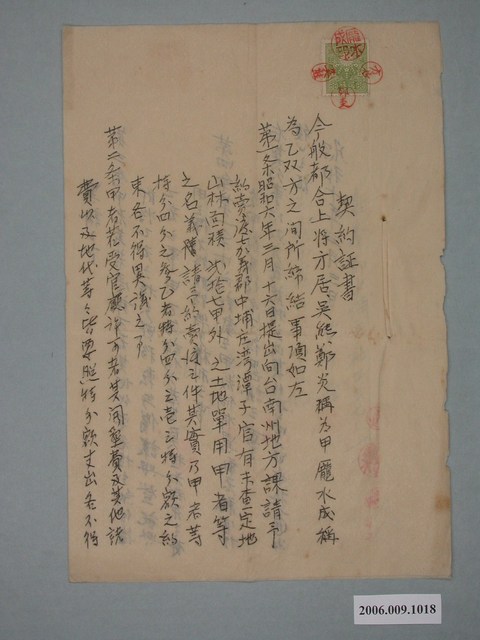 契約証書
今般都合上將方居、吳熊、鄭炎稱為甲龐水成稱
為乙双方之間所締結事項如左
第一条昭和六年三月十六日提出向台南州地方課請予
約賣渡嘉義郡中埔庄湾潭子官有未査定地
山林面積貳拾七甲外之土地單用甲者等
之名義禀請予約賣渡之件其實乃甲者等
持分四分之參乙者持分四分之壱之持分額之約
束各不得異議之事
第二条甲者若受官廳許可者其開墾費及其他諸
費以及地代等々皆要照持分額支出各不得
2006.009.1018